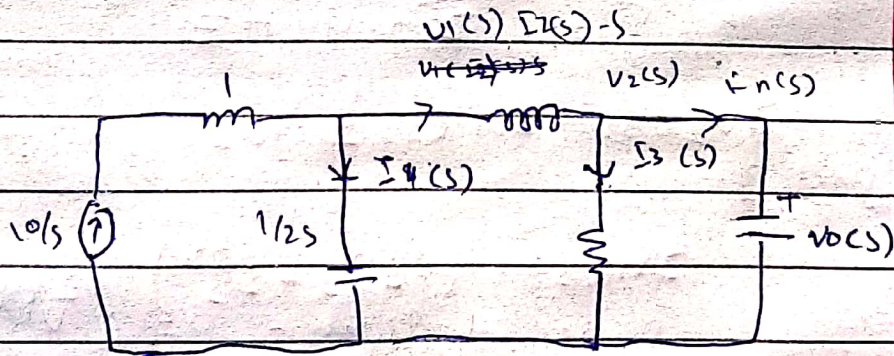 V1(s) I2(s) - S
1
V2(s)
in(s)
I4(s)
I3(s)
10/s
1/2s
+
vo(s)